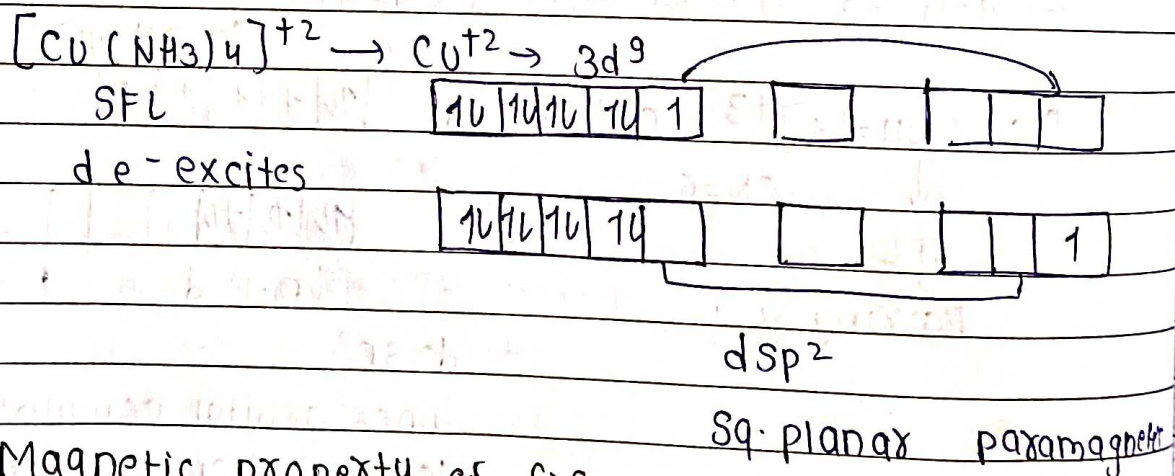 [Cu(NH3)4]+2 → Cu+2 → 3d9
SFL 1L 1L 1L 1L 1
d e- excites
1L 1L 1L 1L 1
dsp2
Sq. planar paramagnetic
Magnetic property of